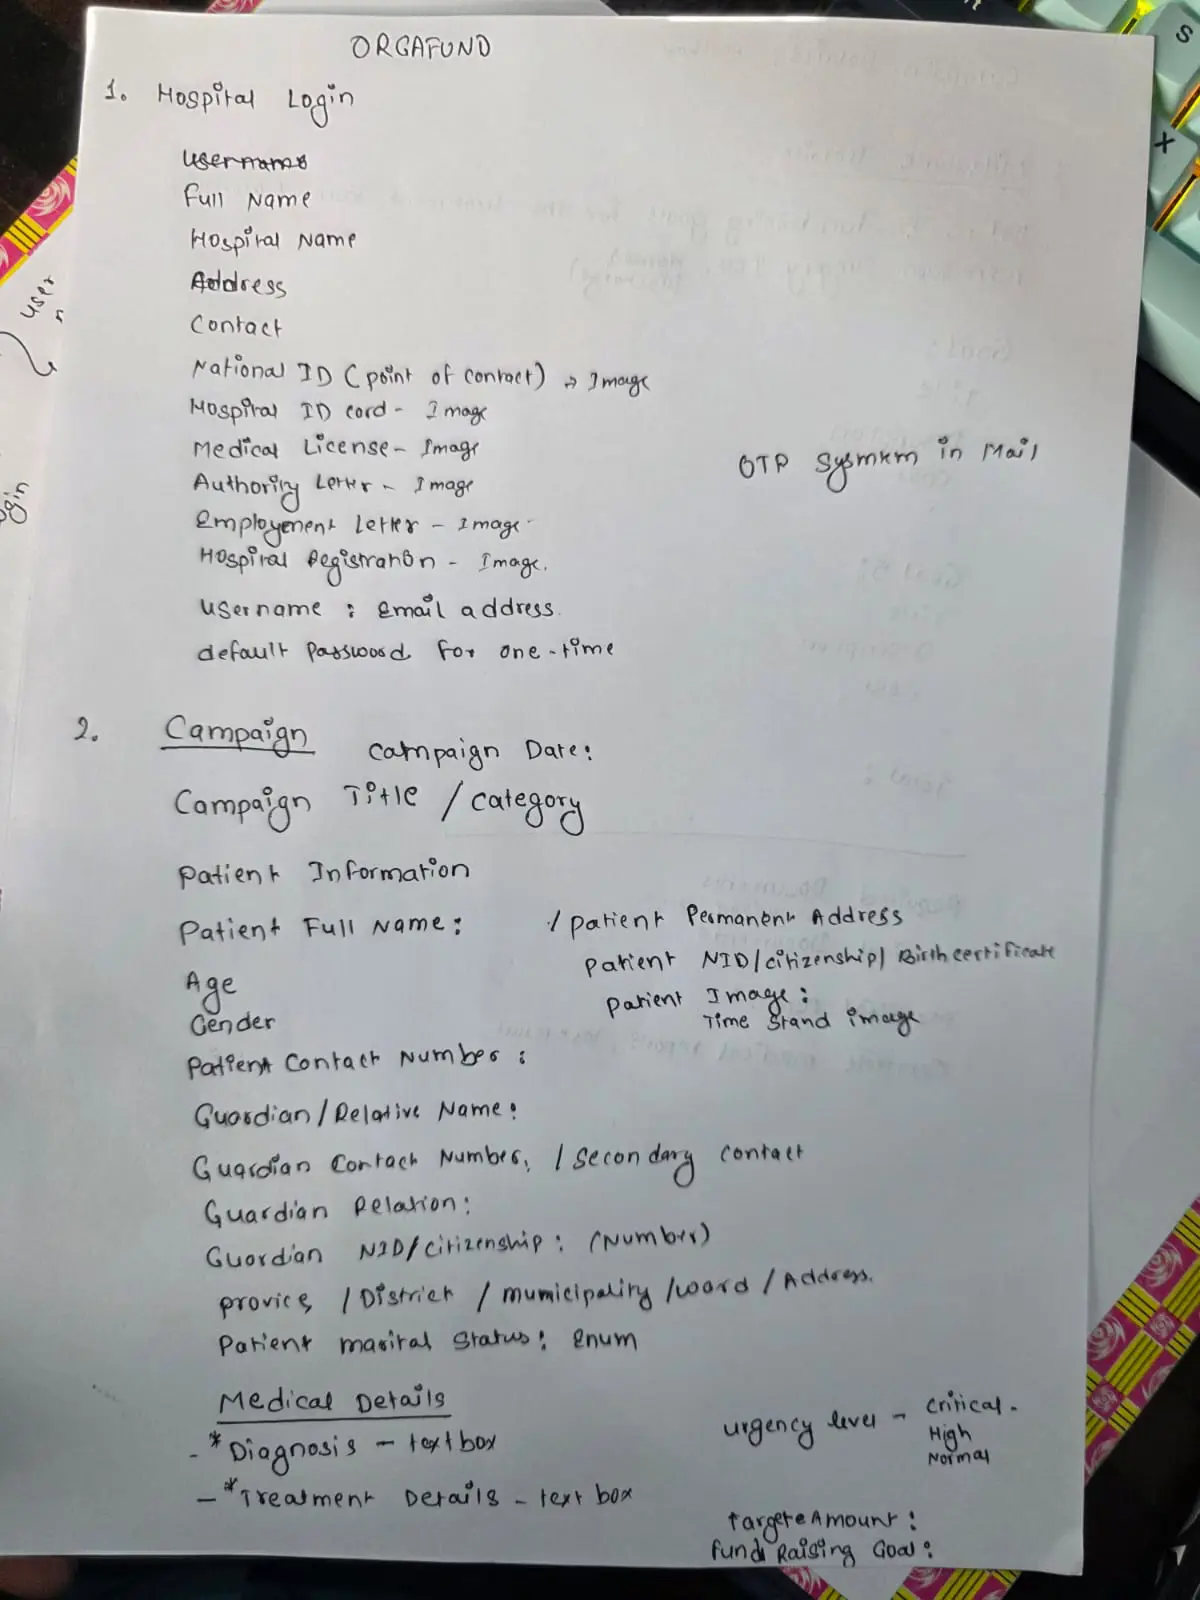 ORGAFUND
1. Hospital Login
username
Full Name
Hospital Name
Address
Contact
National ID (point of contact) → Image
Hospital ID card - Image
Medical License - Image
OTP Sysmtem in Mail
Authority Letter - Image
Employement Letter - Image
Hospital Registration - Image.
username : Email address.
default password for one-time
2. Campaign
Campaign Date:
Campaign Title / category
Patient Information
Patient Full Name: / patient Permanent Address
Patient NID/citizenship/ Birth certificate
Age
Patient Image:
Time Stand image
Gender
Patient Contact Number :
Guardian/Relative Name:
Guardian Contact Number: / Secondary contact
Guardian Relation:
Guardian NID/citizenship: (Number)
provice / District / mumicipality /ward / Address.
Patient marital Status: Enum
Medical Details
urgency level - critical -
High
Normal
- *Diagnosis - text box
- *Treatment Details - text box
Targete Amount :
Fund Raising Goal :
user
gin
S
X